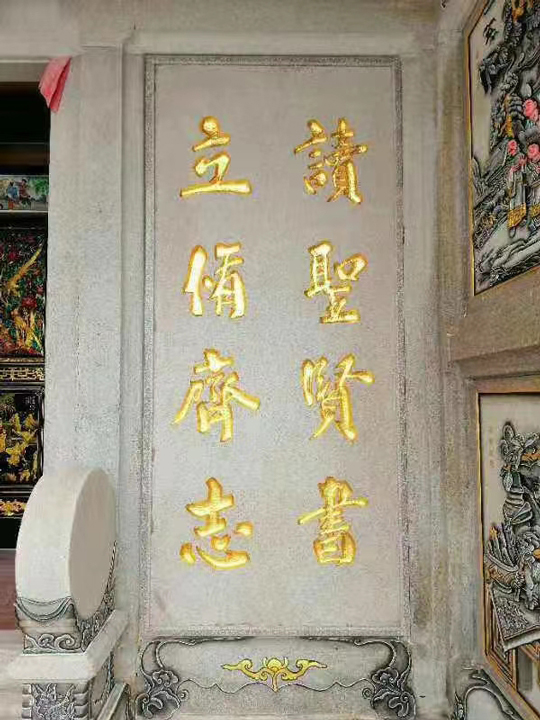 讀聖賢書
立脩齊志